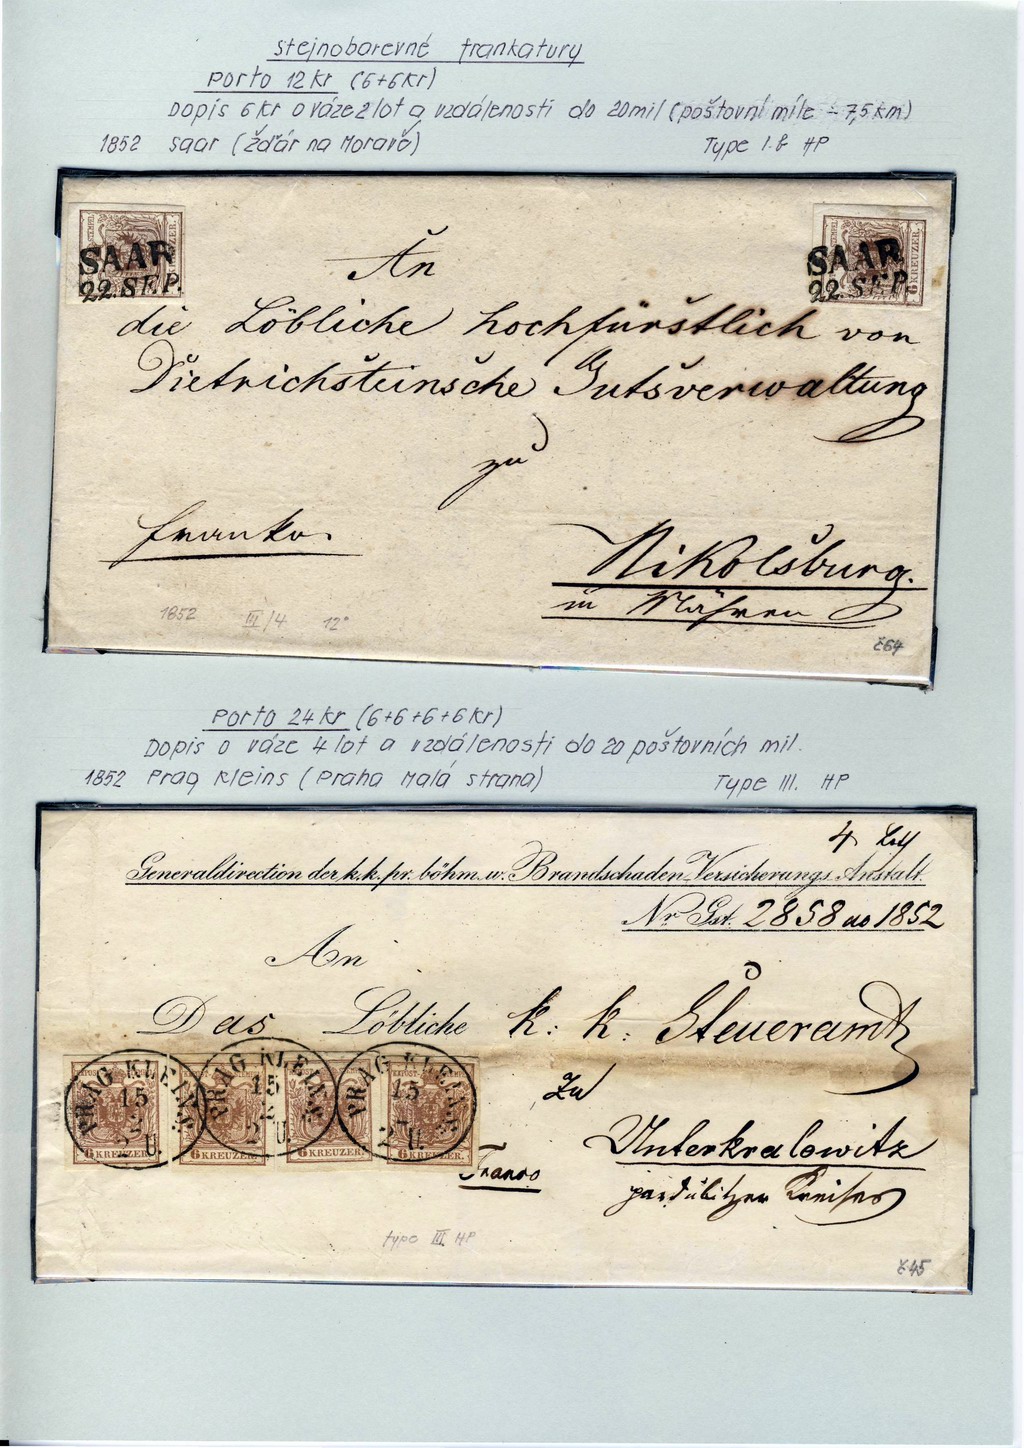 stejnobarevné frankatury
Porto 12 kr (6+6 kr)
Dopis 6 kr o váze 2 lot a vzdálenosti do 20 mil (poštovní míle = 7,5 km)
1852 Saar (Žďár na Moravě) Type I.b HP
SAAR
22. SEP.
KREUZER.
SAAR
22. SEP.
6 KREUZER.
An
die Löbliche hochfürstlich von
Dietrichsteinsche Gutsverwaltung
zu
franko.
Nikolsburg.
in Mähren
1852 III/4 12°
č 64
Porto 24 kr (6+6+6+6 kr)
Dopis o váze 4 lot a vzdálenosti do 20 poštovních mil.
1852 Prag Kleins (Praha Malá strana) Type III. HP
4 Lth
Generaldirection der k.k. pr. böhm. w. Brandschaden-Versicherungs Anstalt.
Nr. Gst. 2858 ao 1852
An
Das Löbliche k: k: Steueramt
PRAG KLEINS
15
2
2 U.
6 KREUZER.
PRAG KLEINS
15
2
2 U.
6 KREUZER.
6 KREUZER.
PRAG KLEINS
15
2 U.
6 KREUZER.
Zu
Franco
Unterkralowitz
pardubitzer Kreises
type III. HP
č 45